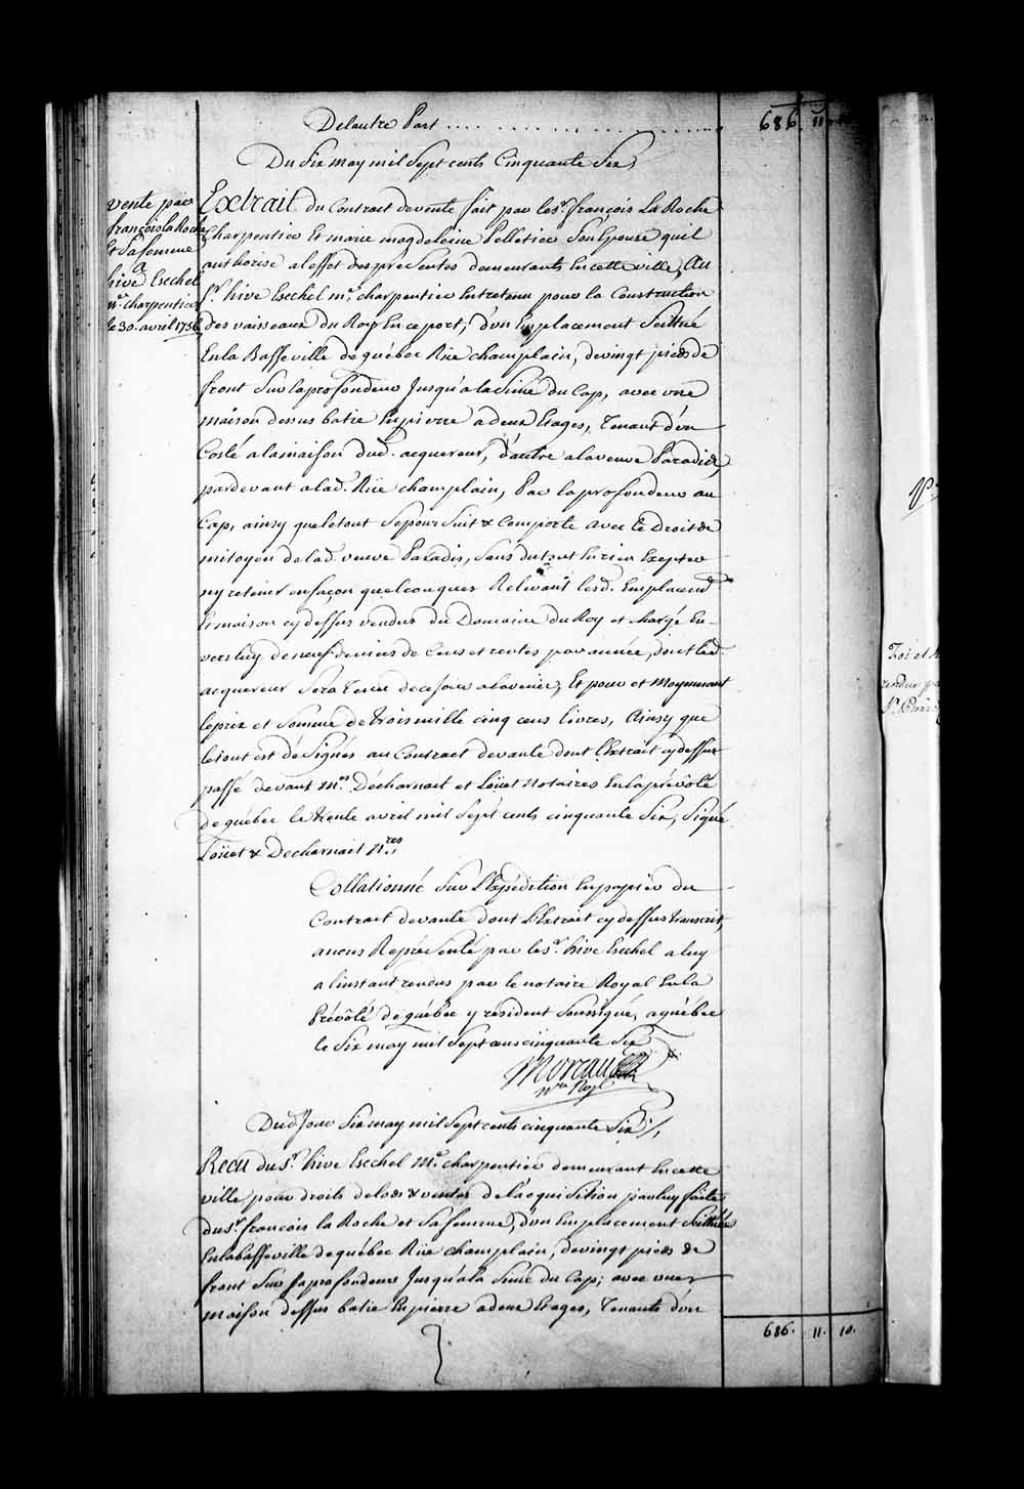 Delautre Part .... 686. 11.
Du Six may mil Sept cents Cinquante Six,
vente par
françois la Roche
Et Sa femme
a
hive Esechel
m.e charpentier
le 30. avril 1756
Extrait du Contract devente fait par les.r françois La Roche
Charpentier Et marie magdeleine Pelletier Son Epouse quil
authorise al effet des presentes demeurants En cette ville, Au
S.r hive Esechel m.e charpentier Entretenu pour la Construction
des vaisseaux du Roy En ce port, d'un Emplacement Scittué
En la Basse ville de québec Rüe champlain, de vingt pieds de
front Sur la profondeur Jusqu'a la Sime du Cap, avec une
maison dessus batie En pierre a deux Etages, Tenant d'un
Costé a la maison dud. acquereur, d'autre a la veuve Paradis,
pardevant a lad. Rüe champlain, Par la profondeur au
Cap, ainsy que le tout Se pour Suit & Comporte avec le droit de
mitoyen de lad. veuve Paradis, Sans du tout En rien Excepter
ny retenir en façon quelconques Relevant lesd. Emplacem.t
Et maison cy dessus vendus du Domaine du Roy et chargé En-
vers luy de neuf deniers de Cens et rentes par année, dont led.
acquereur Sera Tenu de ce jour a l avenir, Et pour et Moyennant
le prix et Somme de trois mille cinq cens livres, Ainsy que
le tout est dé Signés au Contract de vente dont L'Extrait cy dessus
passé devant M.es Décharnait et Loüet Notaires En la prévôté
de québec le trente avril mil Sept cents cinquante Six, Signé
Loüet & Decharnait N.res
Collationné Sur L'Expédition En papier du
Contract de vente dont L'Extrait cy dessus transcrit,
a nous Représenté par le s.r hive Esechel a luy
a l instant rendus par le notaire Royal En la
Prévôté de québec y résident Soussigné, a québec
le Six may mil Sept cens cinquante Six
Moreau
N.re Royl
Dud. Jour Six may mil Sept cents cinquante Six
Recu du S.r hive Esechel M.e charpentier demeurant En cette
ville pour droits de lods & ventes de l'acquisition par luy faite
du S.r françois la Roche et Sa femme, d'un Emplacement Scittué
En la basse ville de québec Rüe champlain, de vingt pieds de
front Sur Sa profondeur Jusqu'a la Sime du Cap; avec une
maison dessus batie En pierre a deux Etages, Tenante d'un
686. 11. 10.
Foi et
rendue pa